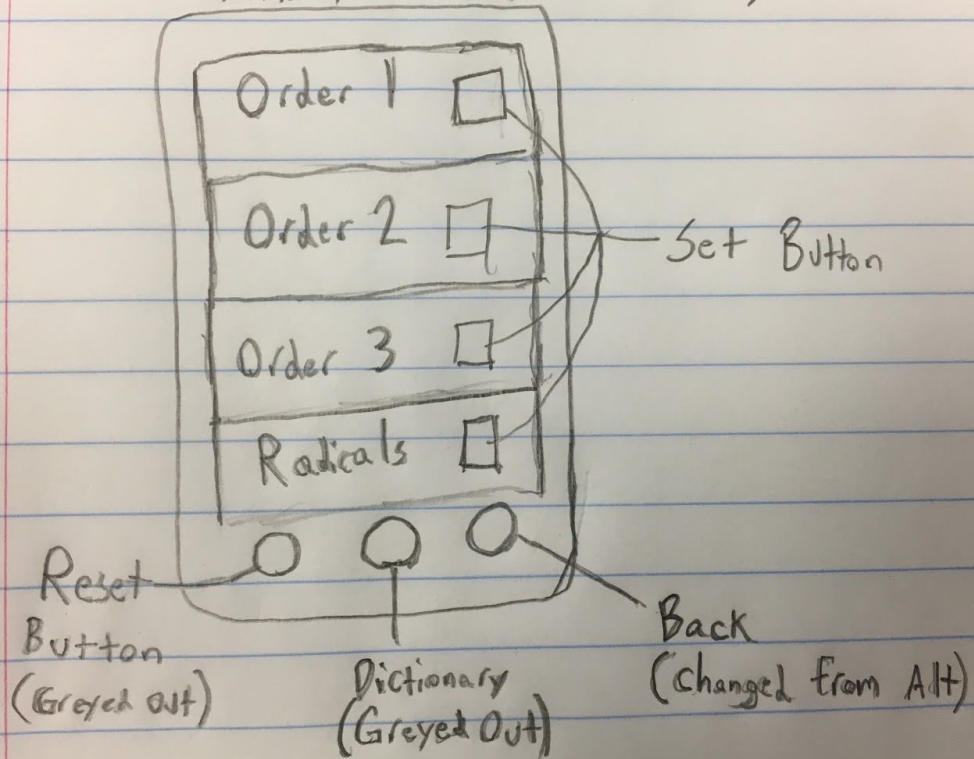 Order 1
Order 2
Set Button
Order 3
Radicals
Reset
Button
(Greyed Out)
Dictionary
(Greyed Out)
Back
(Changed from Alt)